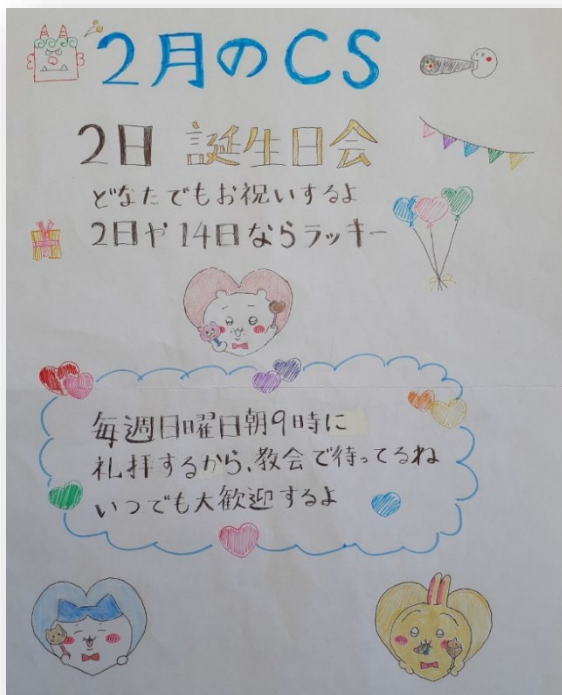 2月のCS
2日 誕生日会
どなたでもお祝いするよ
2日や14日ならラッキー
毎週日曜日朝9時に
礼拝するから、教会で待ってるね
いつでも大歓迎するよ